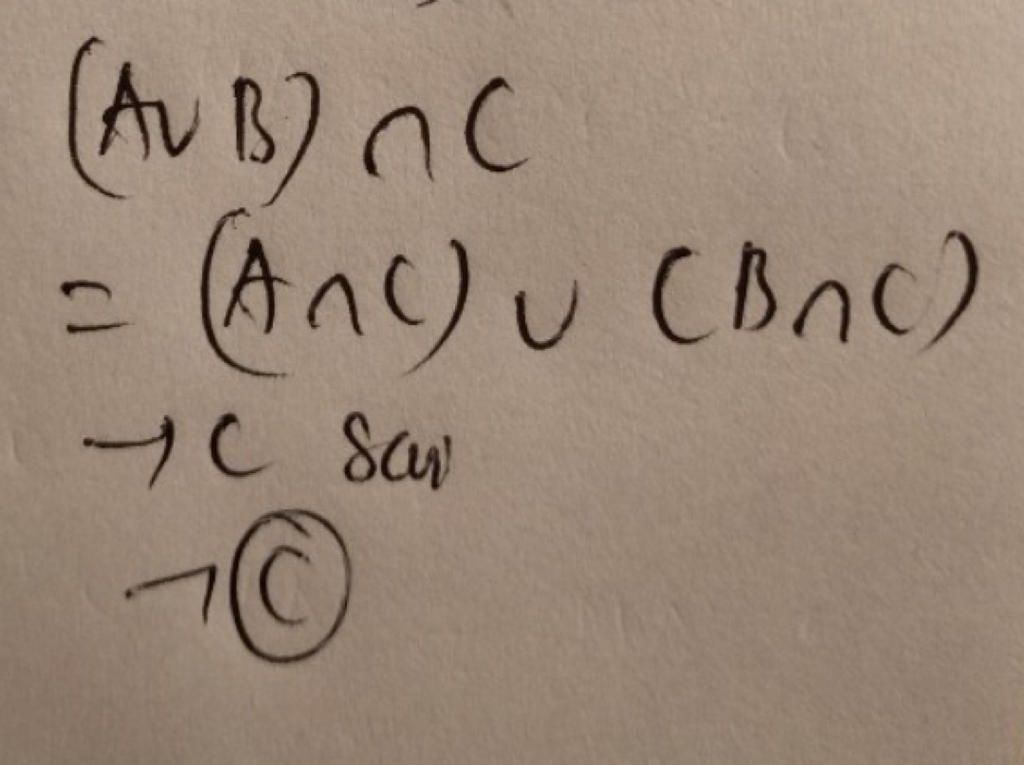 (A∪B) ∩ C
= (A∩C) ∪ (B∩C)
→ C sai
→ C